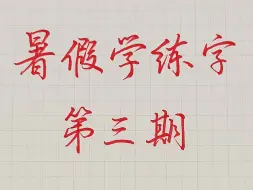 暑假学练字
第三期